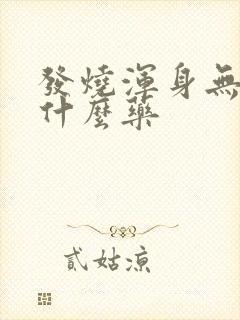 發燒渾身無
什麼藥
貳姑涼